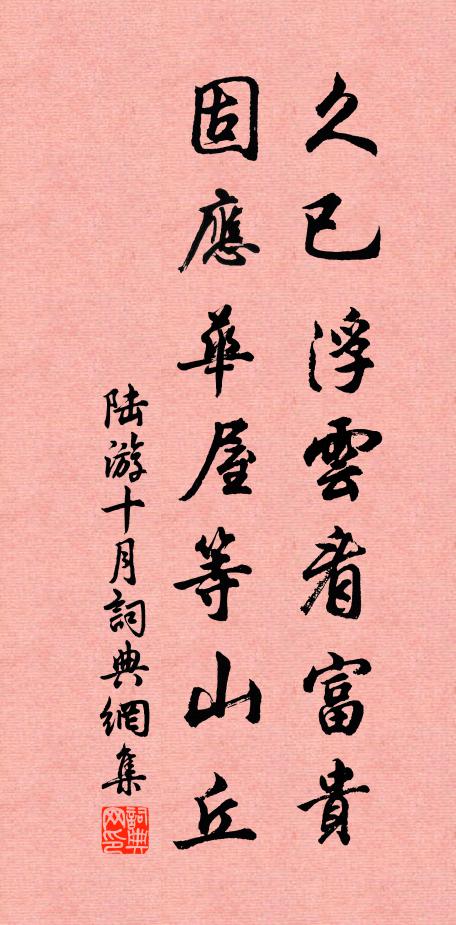 久已浮雲看富貴
固應華屋等山丘
陆游十月詞典網集
詞典网印